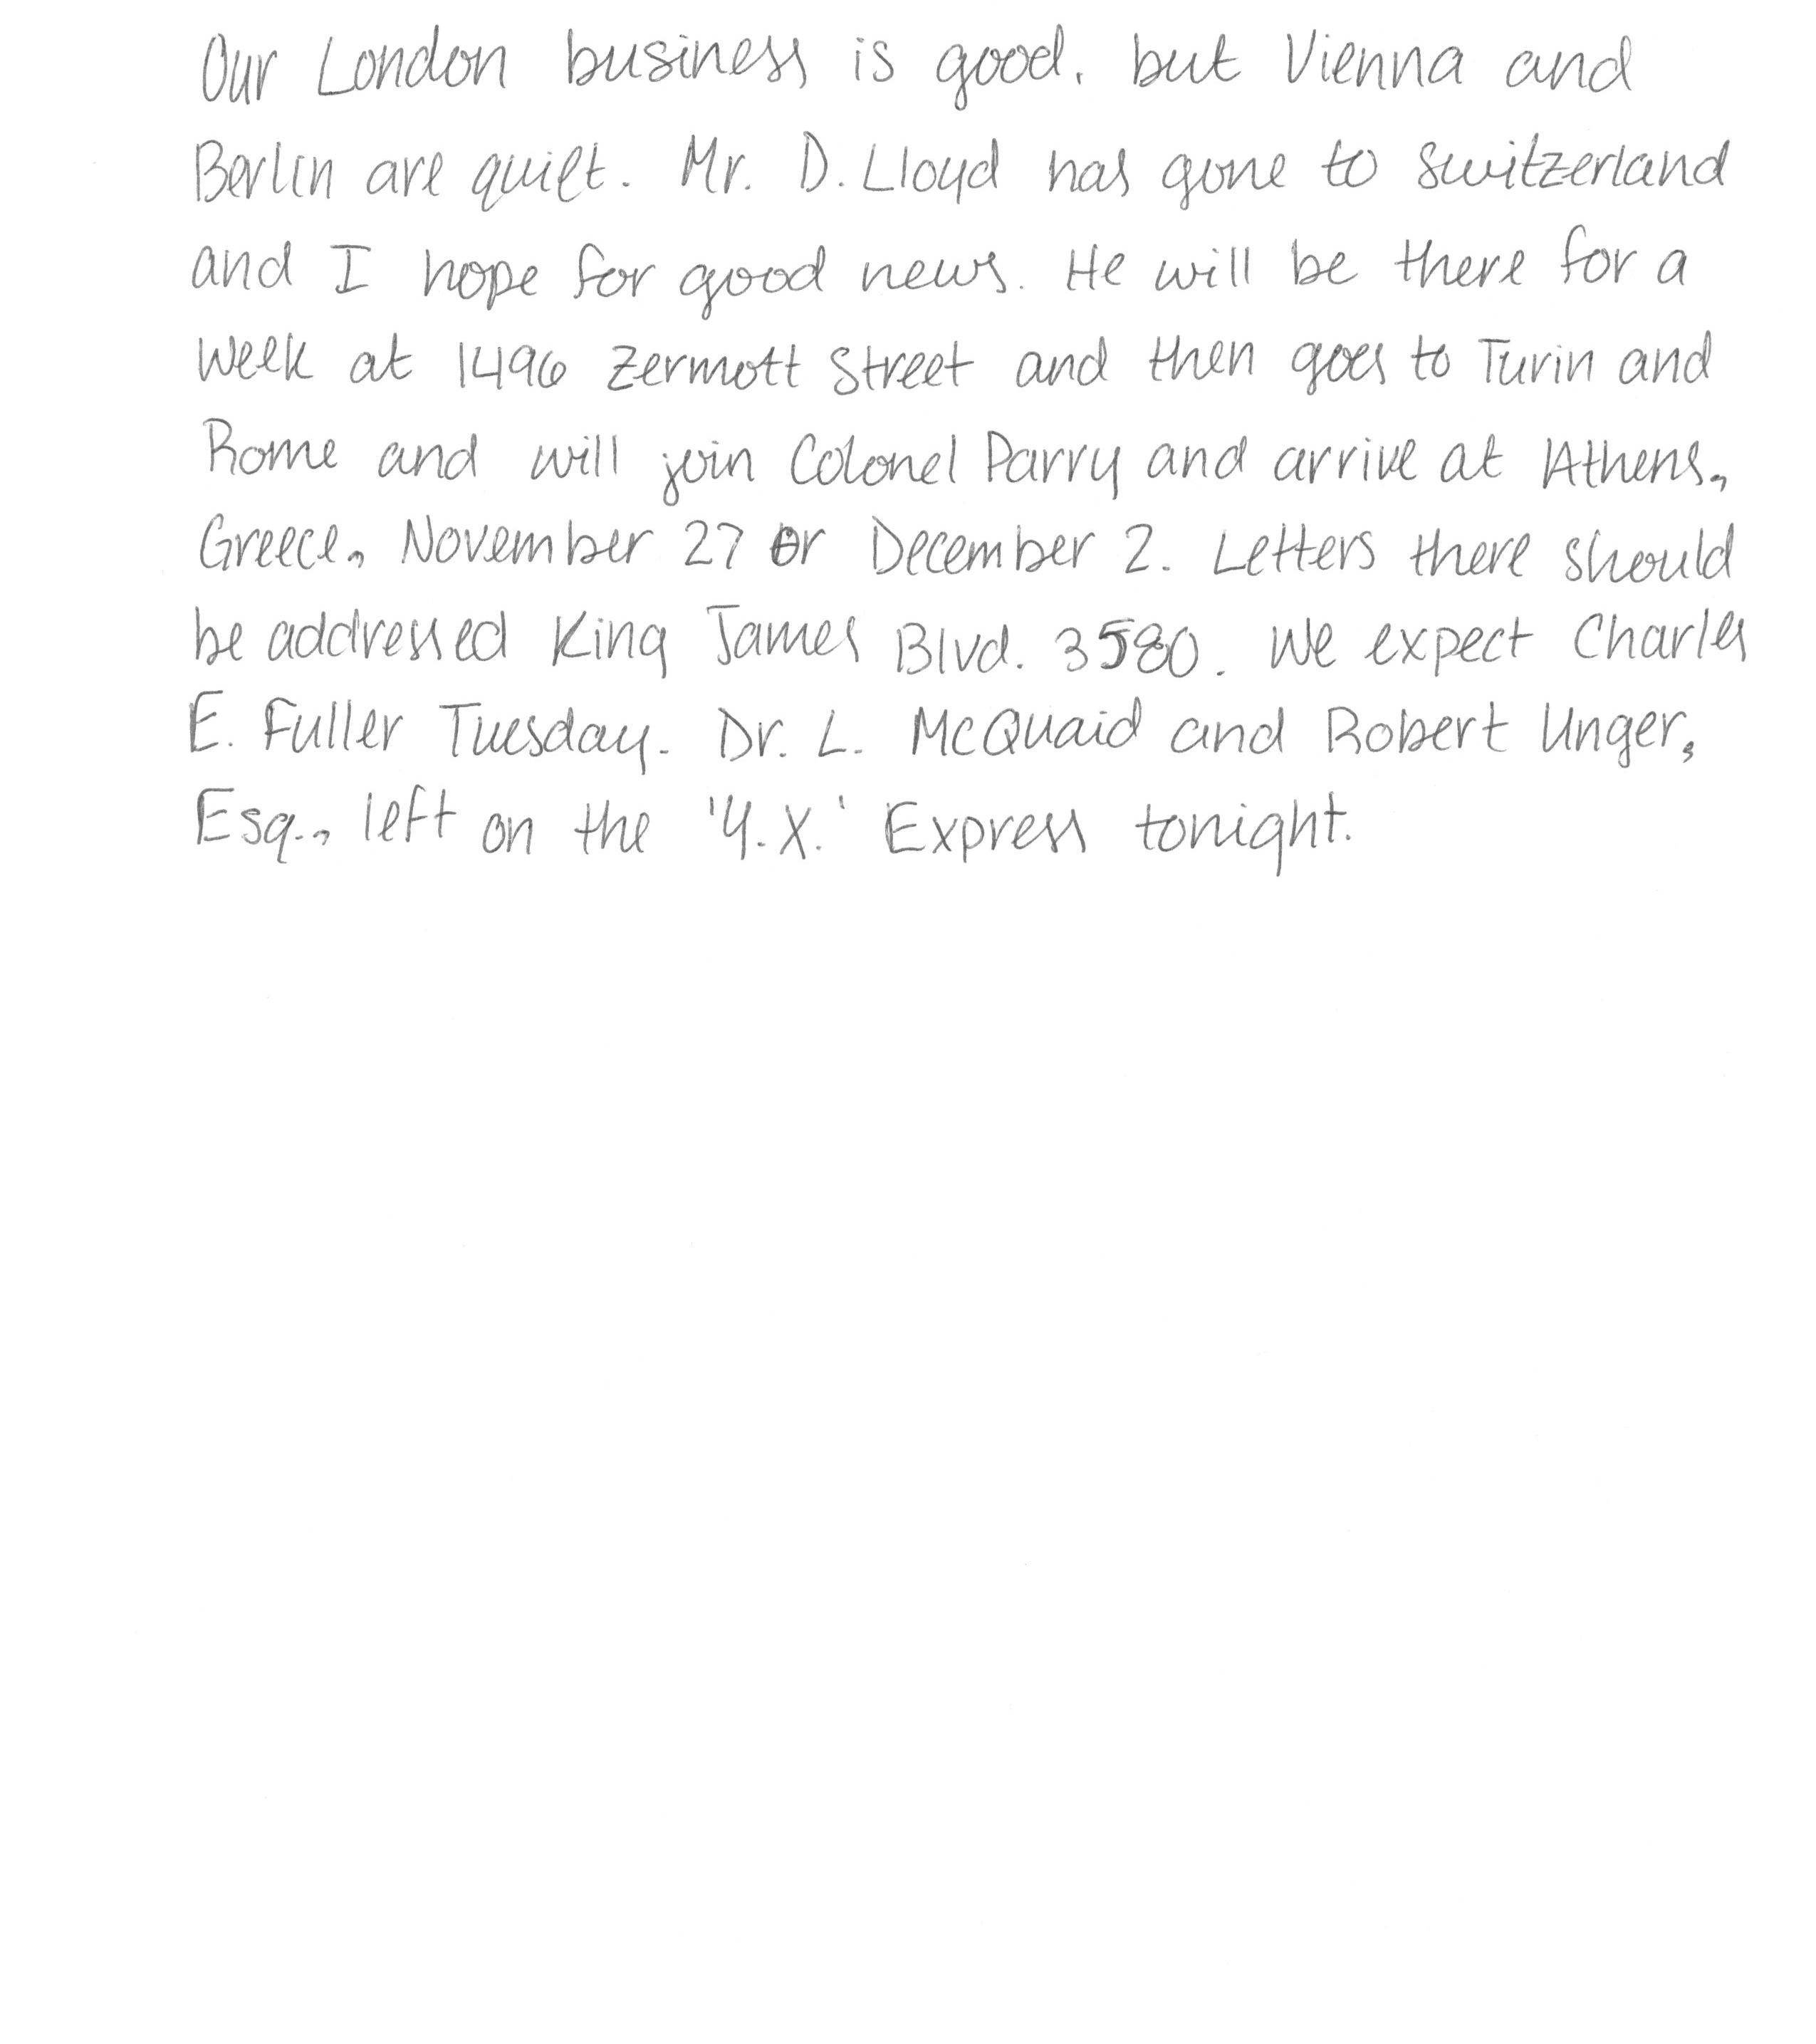 Our London business is good, but Vienna and
Berlin are quiet. Mr. D. Lloyd has gone to Switzerland
and I hope for good news. He will be there for a
week at 1496 Zermott Street and then goes to Turin and
Rome and will join Colonel Parry and arrive at Athens,
Greece, November 27 or December 2. Letters there should
be addressed King James Blvd. 3580. We expect Charles
E. Fuller Tuesday. Dr. L. McQuaid and Robert Unger,
Esq., left on the 'Y.X.' Express tonight.